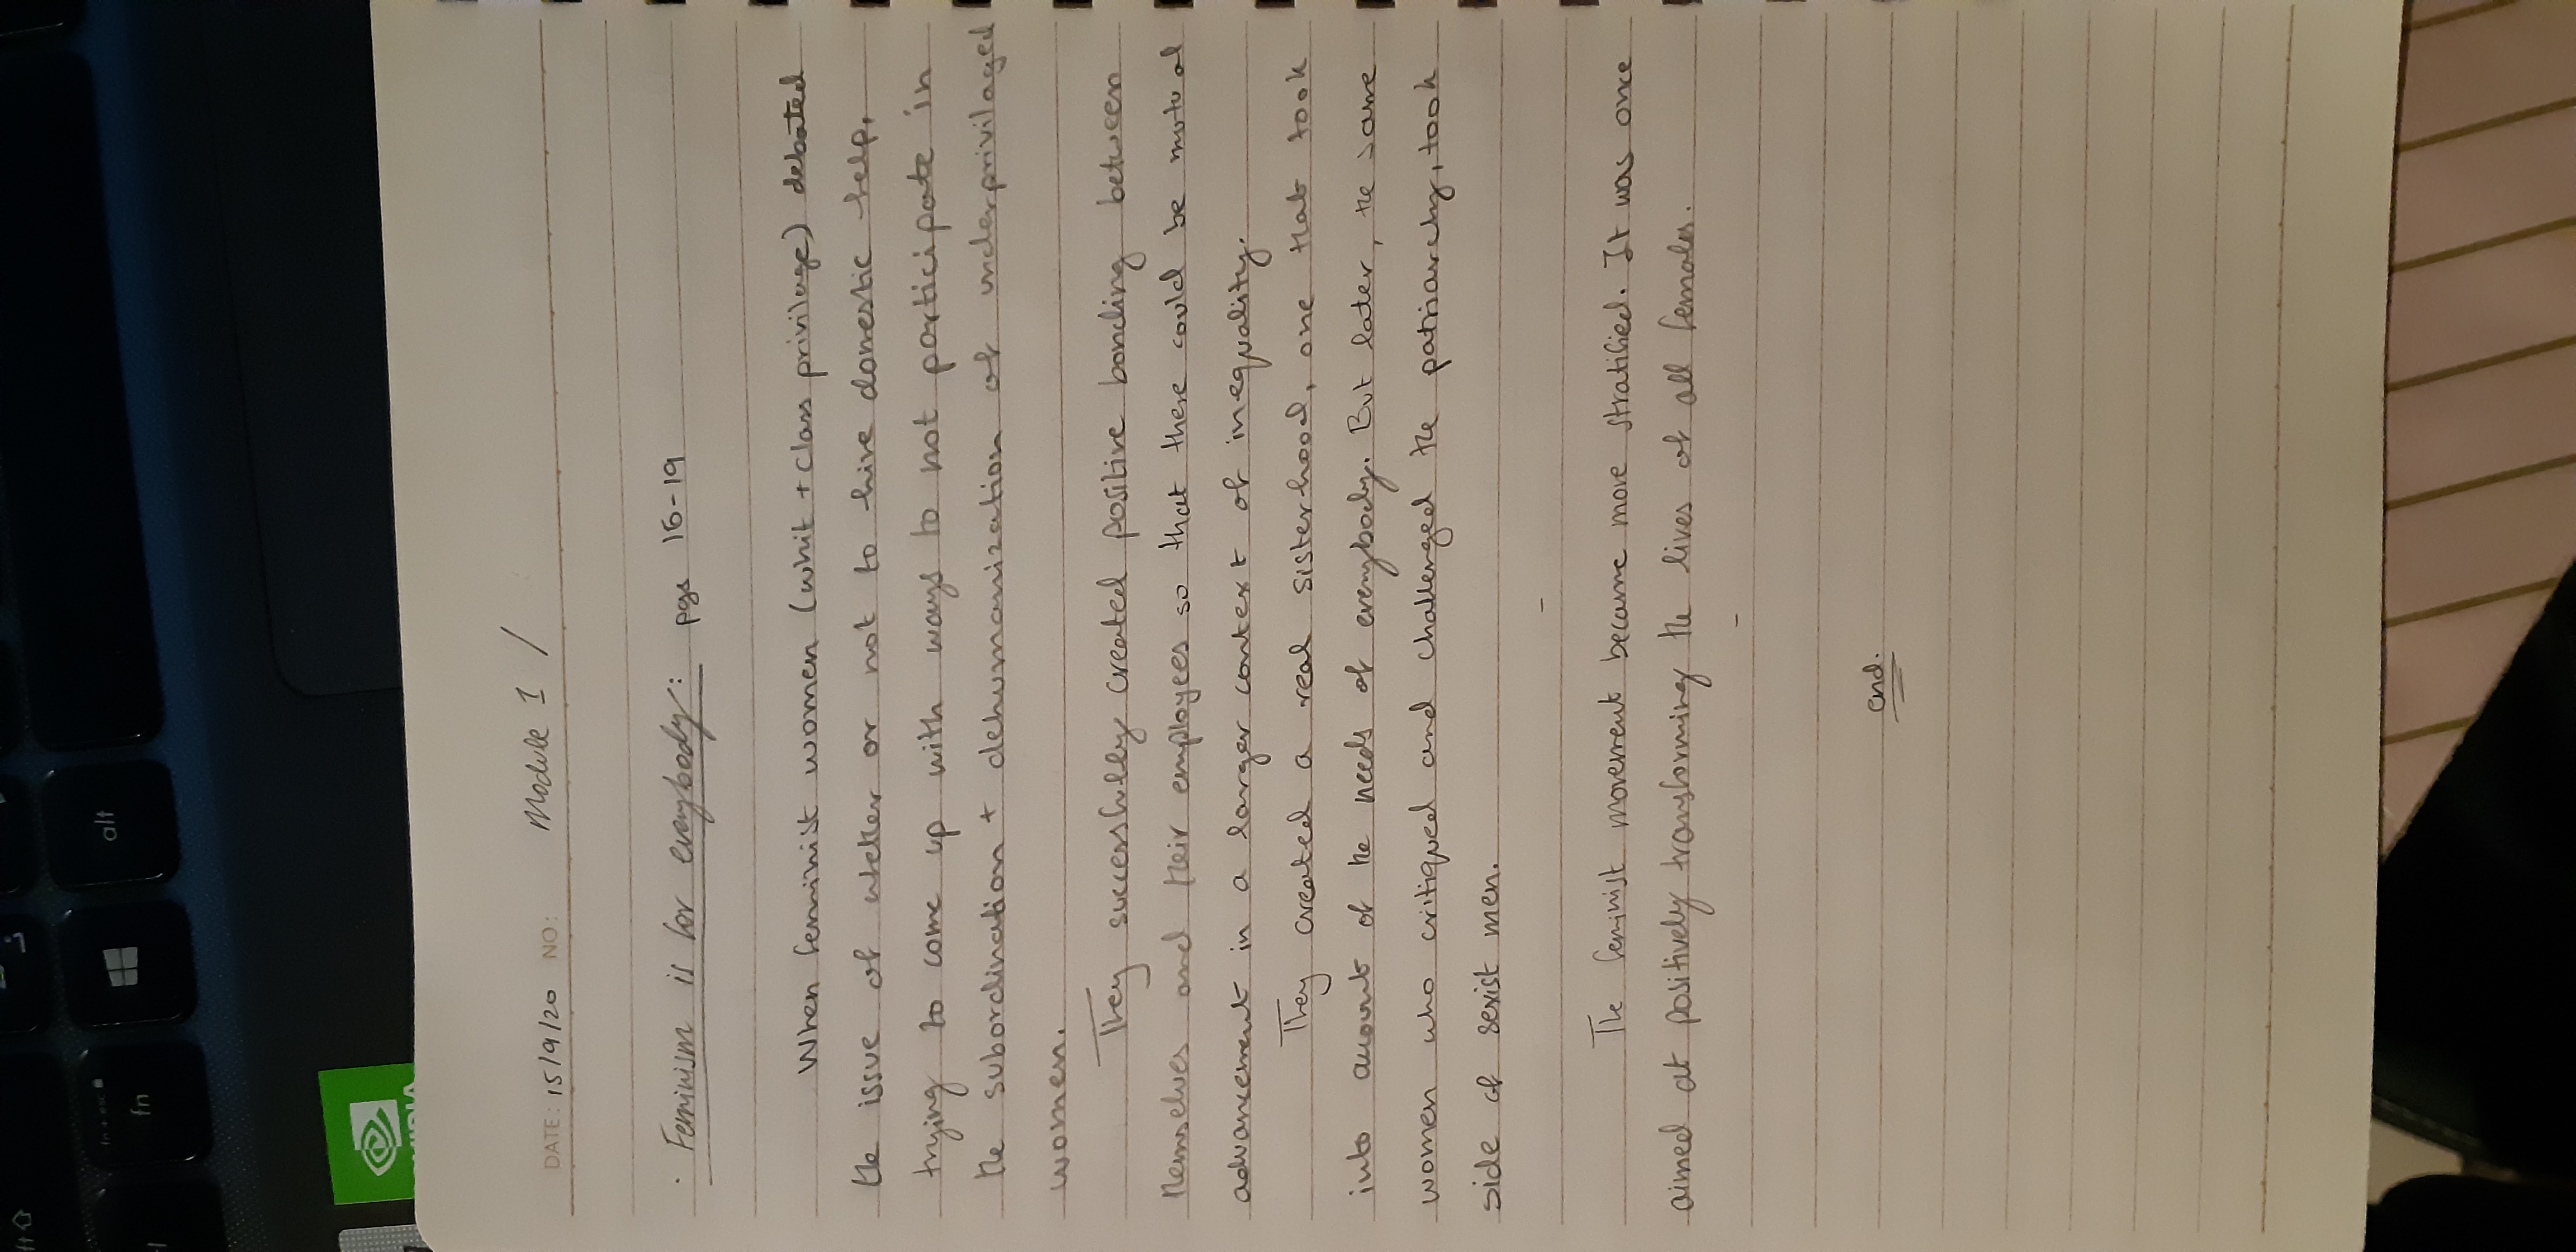 fn + esc
fn
alt
NVIDIA
DATE: 15/9/20 NO: Module 1 /
· Feminism is for everybody: pgs 16-19
When feminist women (whit + class privilage) debated
the issue of whether or not to hire domestic help,
trying to come up with ways to not participate in
the subordination + dehumanization of underprivilaged
women.
They successfully created positive bonding between
themselves and their employees so that there could be mutual
advancement in a larger context of inequality.
They created a real sisterhood, one that took
into account of the needs of everybody. But later, the same
women who critiqued and challenged the patriarchy, took
side of sexist men.
-
The feminist movement became more stratified. It was once
aimed at positively transforming the lives of all females.
-
end.